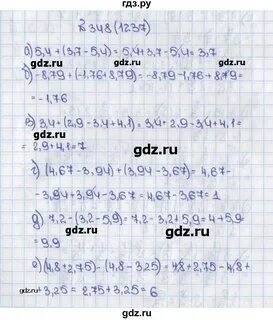 №348(1237)
gdz.ru
а) 5,4 + (3,7 - 5,4) = 5,4 + 3,7 - 5,4 = 3,7
б) -8,79 + (-1,76 + 8,79) = -8,79 - 1,76 + 8,79 =
= -1,76
gdz.ru gdz.ru
в) 3,4 + (2,9 - 3,4 + 4,1) = 3,4 + 2,9 - 3,4 + 4,1 =
= 2,9 + 4,1 = 7
г) (4,67 - 3,94) + (3,94 - 3,67) = 4,67 -
- 3,94 + 3,94 - 3,67 = 4,67 - 3,67 = 1
gdz.ru
д) 7,2 - (3,2 - 5,9) = 7,2 - 3,2 + 5,9 = 4 + 5,9
= 9,9
е) (4,8 + 2,75) - (4,8 - 3,25) = 4,8 + 2,75 - 4,8 +
gdz.ru + 3,25 = 2,75 + 3,25 = 6 gdz.ru